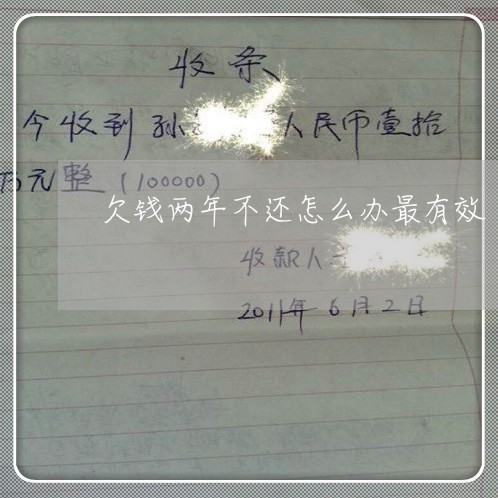 收条
今收到孙人民币壹拾
万元整（100000）
欠钱两年不还怎么办最有效
收款人
2011年6月2日